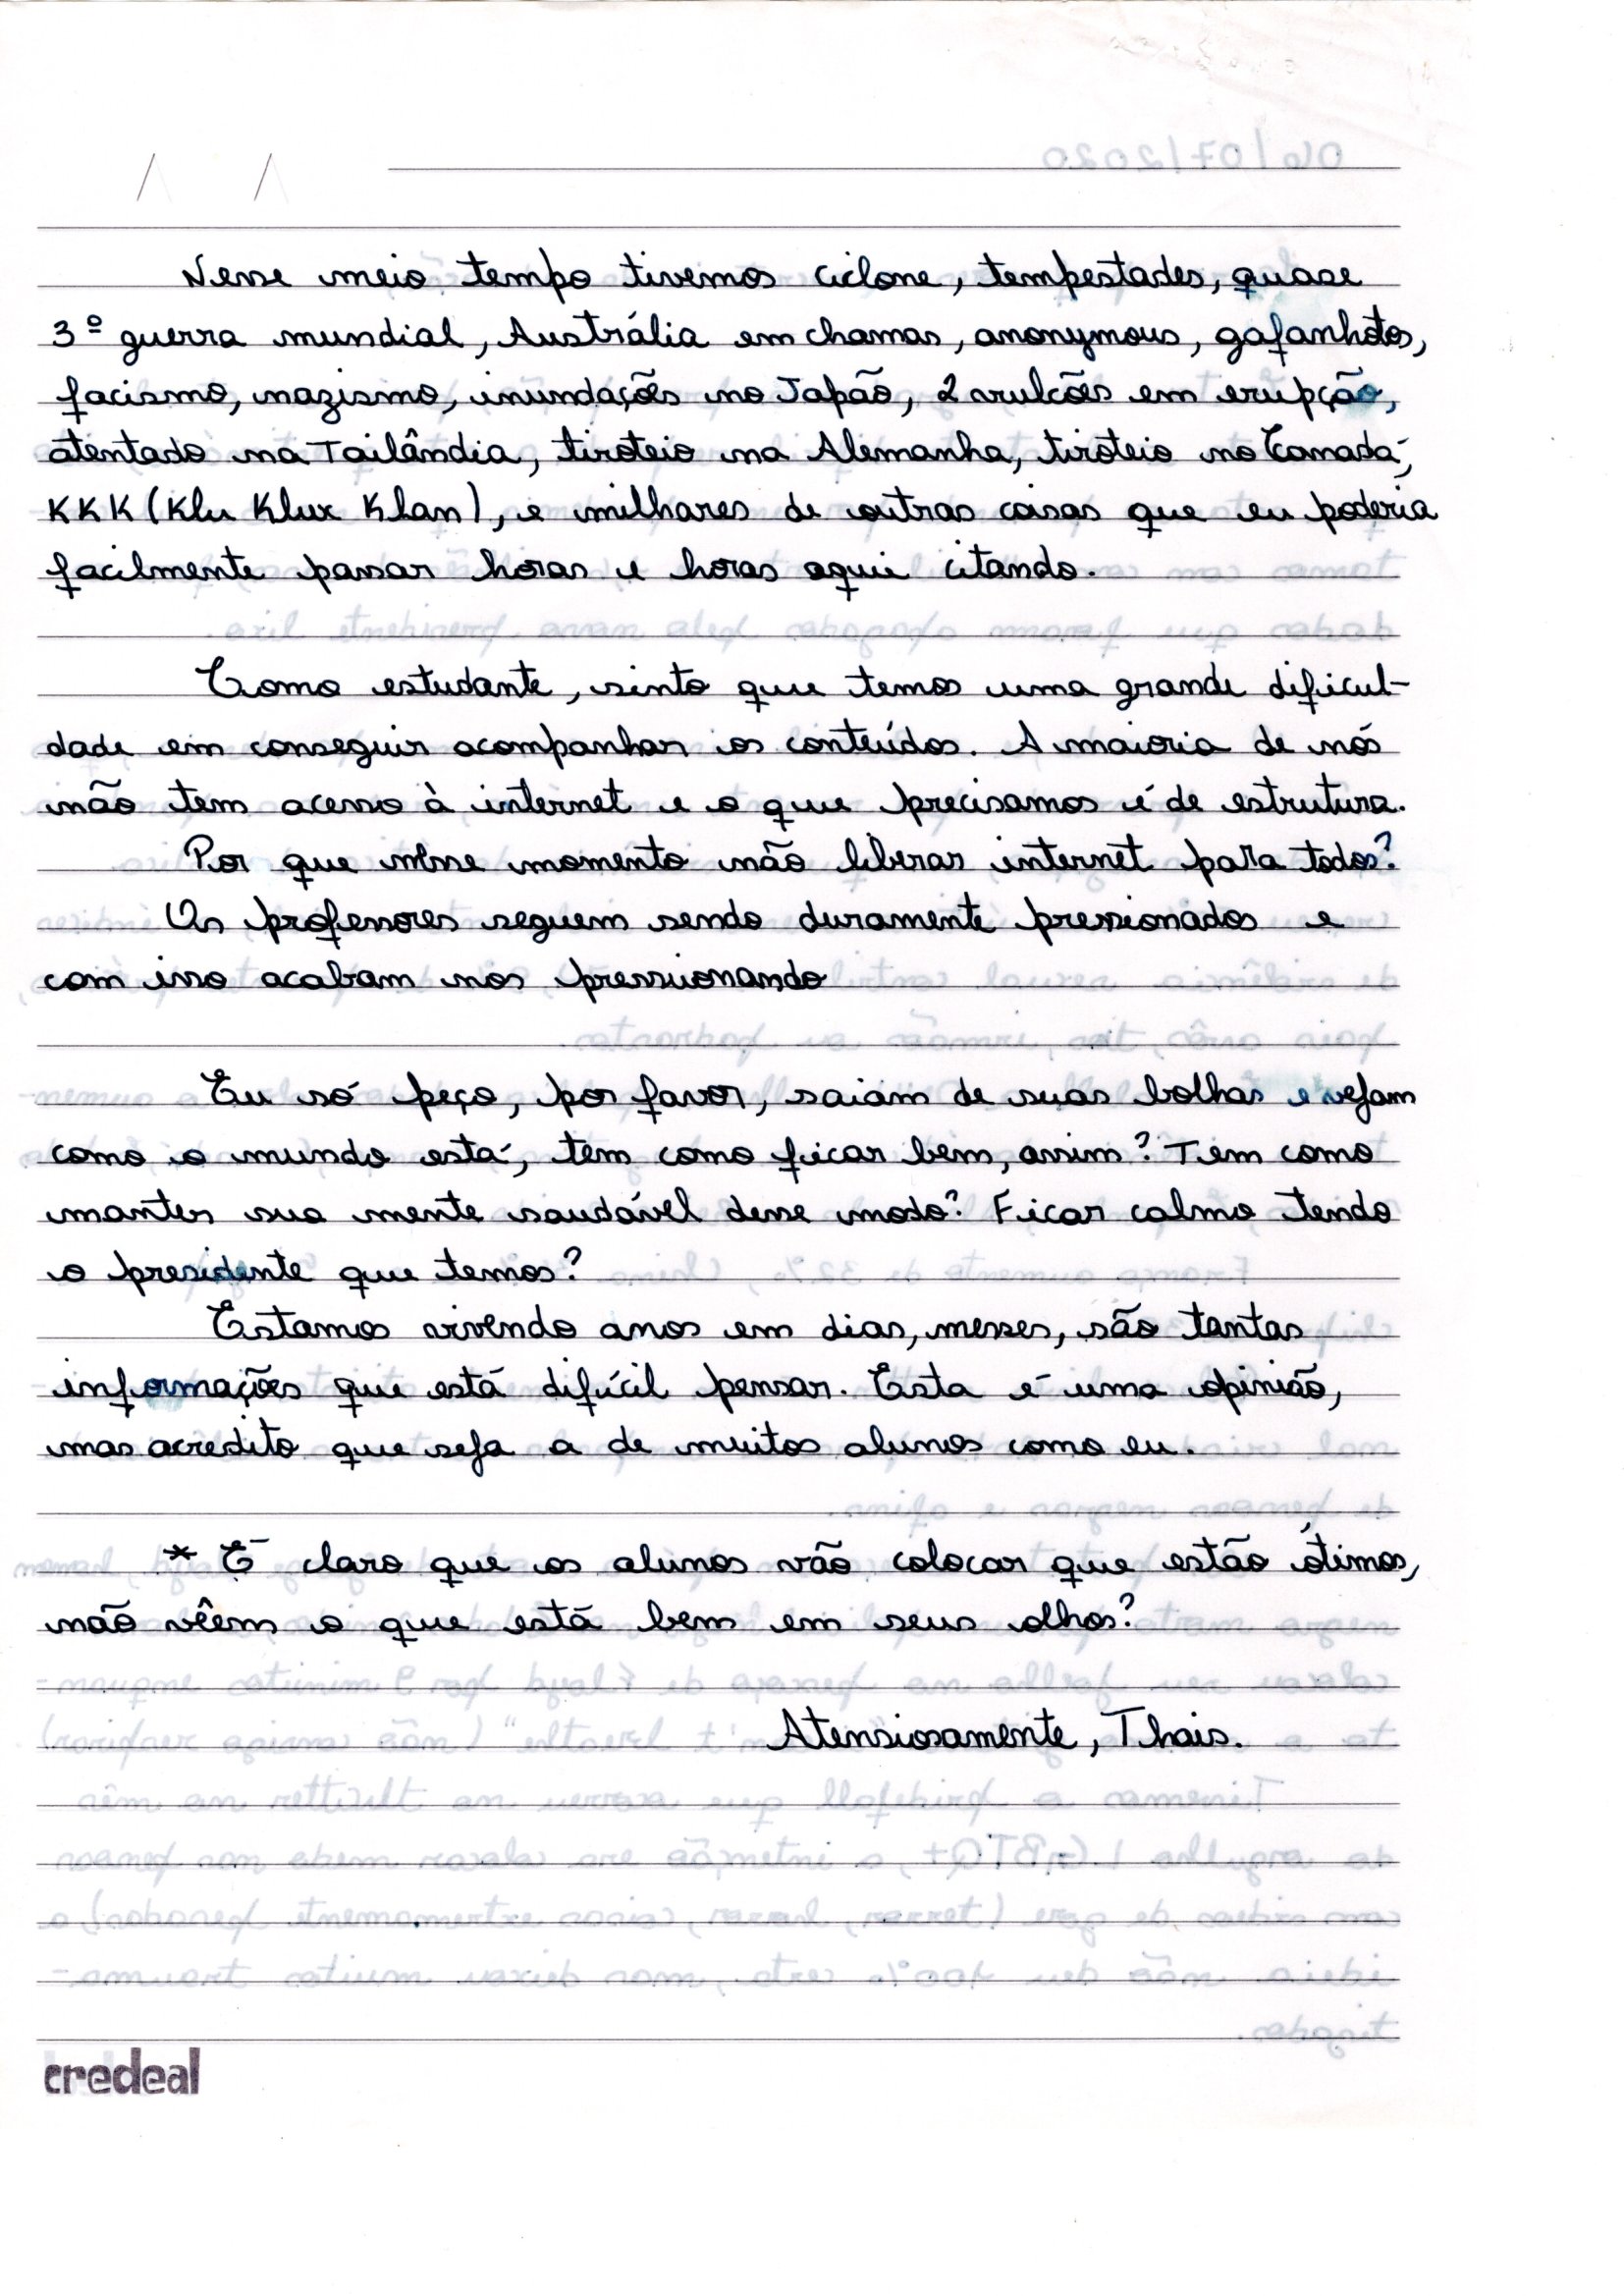 Nesse meio tempo tivemos ciclone, tempestades, quase
3º guerra mundial, Austrália em chamas, anonymous, gafanhotos,
facismo, nazismo, inundações no Japão, 2 vulcões em erupção,
atentado na Tailândia, tiroteio na Alemanha, tiroteio no Canadá,
KKK (Klu Klux Klan), e milhares de outras coisas que eu poderia
facilmente passar horas e horas aqui citando.
Como estudante, sinto que temos uma grande dificul-
dade em conseguir acompanhar os conteúdos. A maioria de nós
não tem acesso à internet e o que precisamos é de estrutura.
Por que nesse momento não liberar internet para todos?
Os professores seguem sendo duramente pressionados e
com isso acabam nos pressionando
Eu só peço, por favor, saiam de suas bolhas e vejam
como o mundo está, tem como ficar bem, assim? Tem como
manter sua mente saudável desse modo? Ficar calmo tendo
o presidente que temos?
Estamos vivendo anos em dias, messes, são tantas
informações que está difícil pensar. Esta é uma opinião,
mas acredito que seja a de muitos alunos como eu.
* É claro que os alunos vão colocar que estão ótimos,
não vêem o que está bem em seus olhos?
Atensiosamente, Thais.
credeal